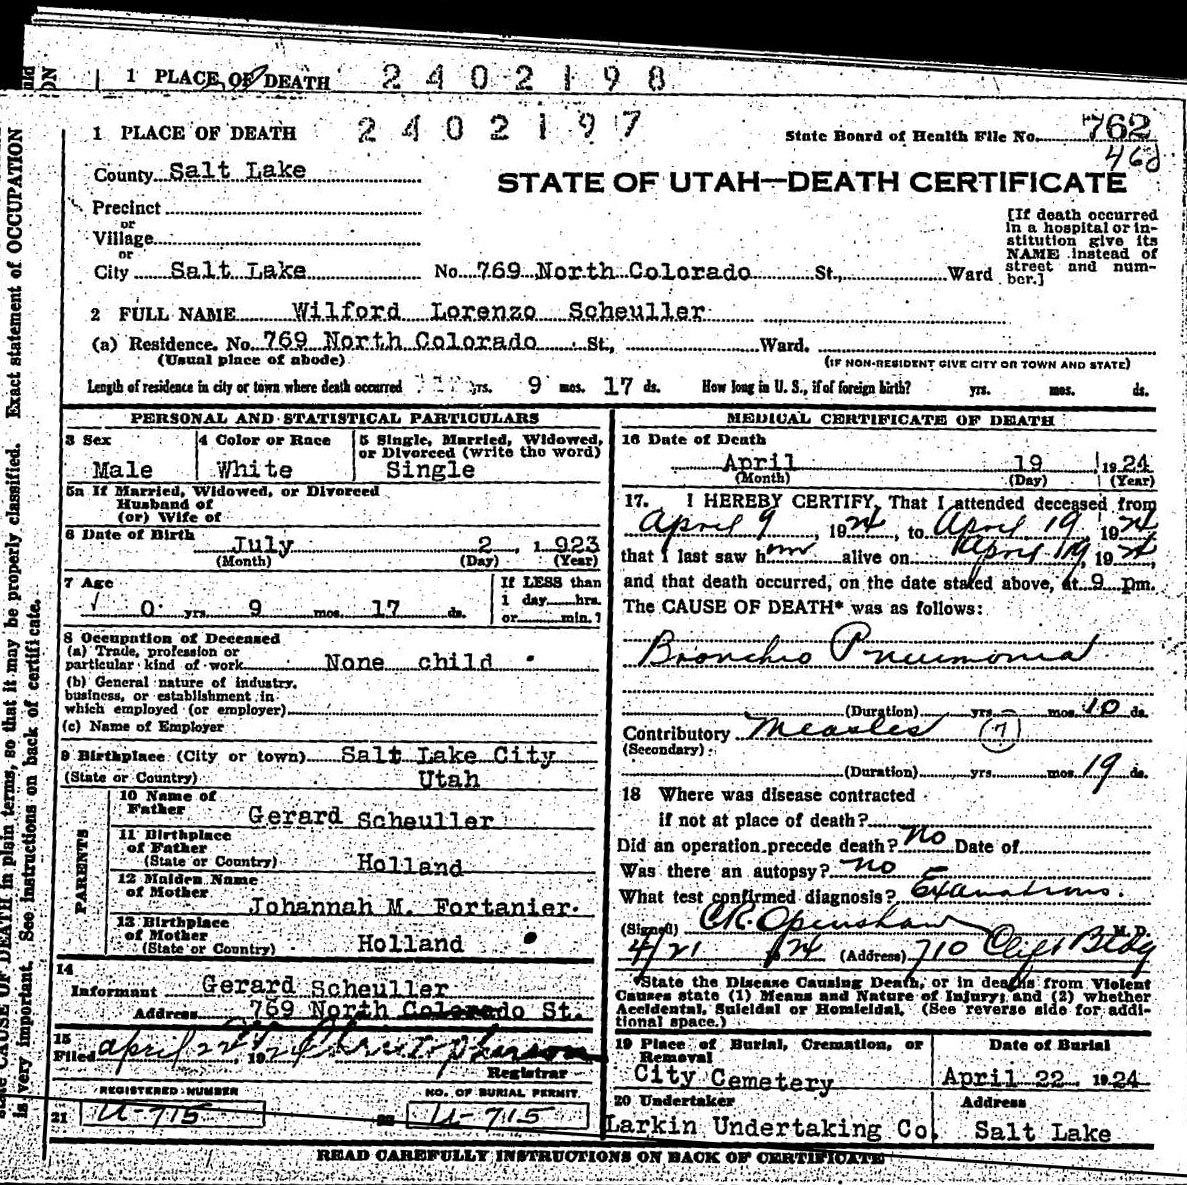 1 PLACE OF DEATH 2402198
1 PLACE OF DEATH 2402197
State Board of Health File No. 762
468
County Salt Lake
STATE OF UTAH—DEATH CERTIFICATE
Precinct
or
Village
or
City Salt Lake No. 769 North Colorado St., Ward
[If death occurred
in a hospital or in-
stitution give its
NAME instead of
street and num-
ber.]
2 FULL NAME Wilford Lorenzo Scheuller
(a) Residence. No. 769 North Colorado St., Ward.
(Usual place of abode)
(IF NON-RESIDENT GIVE CITY OR TOWN AND STATE)
Length of residence in city or town where death occurred yrs. 9 mos. 17 ds. How long in U. S., if of foreign birth? yrs. mos. ds.
PERSONAL AND STATISTICAL PARTICULARS
3 Sex
Male
4 Color or Race
White
5 Single, Married, Widowed,
or Divorced (write the word)
Single
5a If Married, Widowed, or Divorced
Husband of
(or) Wife of
6 Date of Birth
July 2, 1923
(Month) (Day) (Year)
7 Age
0 yrs. 9 mos. 17 ds.
If LESS than
1 day hrs.
or min.?
8 Occupation of Deceased
(a) Trade, profession or
particular kind of work None child
(b) General nature of industry,
business, or establishment in
which employed (or employer)
(c) Name of Employer
9 Birthplace (City or town) Salt Lake City
(State or Country) Utah
PARENTS
10 Name of
Father Gerard Scheuller
11 Birthplace
of Father
(State or Country) Holland
12 Maiden Name
of Mother Johannah M. Fortanier.
13 Birthplace
of Mother
(State or Country) Holland
14
Informant Gerard Scheuller
Address 769 North Colorado St.
15
Filed april 22 1924
Registrar
REGISTERED NUMBER
21 U-715
NO. OF BURIAL PERMIT
22 U-715
MEDICAL CERTIFICATE OF DEATH
16 Date of Death
April 19 1924
(Month) (Day) (Year)
17. I HEREBY CERTIFY, That I attended deceased from
April 9, 1924, to April 19, 1924
that I last saw him alive on April 19, 1924,
and that death occurred, on the date stated above, at 9 pm.
The CAUSE OF DEATH* was as follows:
Bronchio Pneumonia
(Duration) yrs. mos. 10 ds.
Contributory Measles (7)
(Secondary)
(Duration) yrs. mos. 19 ds.
18 Where was disease contracted
if not at place of death?
Did an operation precede death? No Date of
Was there an autopsy? no
What test confirmed diagnosis?
(Signed) C.R. Openshaw M.D.
4/21 1924 (Address) 710 Clift Bldg
*State the Disease Causing Death, or in deaths from Violent
Causes state (1) Means and Nature of Injury; and (2) whether
Accidental, Suicidal or Homicidal. (See reverse side for addi-
tional space.)
19 Place of Burial, Cremation, or
Removal
City Cemetery
Date of Burial
April 22, 1924
20 Undertaker
Larkin Undertaking Co.
Address
Salt Lake
READ CAREFULLY INSTRUCTIONS ON BACK OF CERTIFICATE
CAUSE OF DEATH in plain terms, so that it may be properly classified. Exact statement of OCCUPATION
is very important. See instructions on back of certificate.